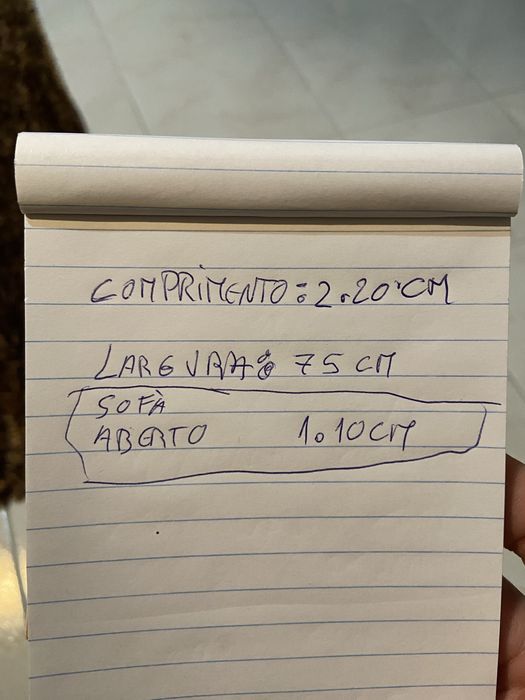 COMPRIMENTO: 2.20 CM
LARGURA: 75 CM
SOFÀ
ABERTO 1.10 CM